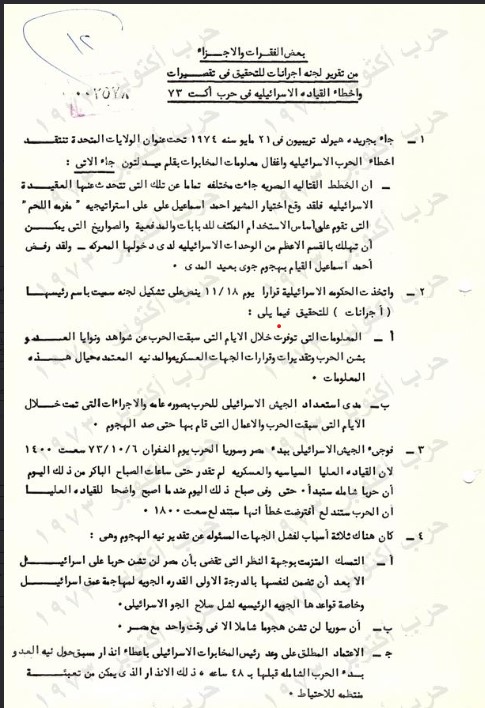 ١٢
بعض الفقرات والاجزاء
من تقرير لجنه اجرانات للتحقيق فى تقصيرات
واخطاء القياده الاسرائيليه فى حرب أكت ٧٣
١ ـ جاء بجريده هيرلد تريبيون فى ٢١ مايو سنه ١٩٧٤ تحت عنوان الولايات المتحدة تنتقد
اخطاء الحرب الاسرائيليه واغفال معلومات المخابرات بقلم ميدلتون جاء الاتى :
ـ ان الخطط القتاليه المصريه جاءت مختلفه تماما عن تلك التى تتحدث عنها العقيدة
الاسرائيليه فلقد وقع اختيار المشير احمد اسماعيل على على استراتيجيه " مفرمه اللحم "
التى تقوم على أساس الاستخدام المكثف للدبابات والمدفعية والصواريخ التى يمكن
أن تهلك بالقسم الاعظم من الوحدات الاسرائيليه لدى دخولها المعركه ـ ولقد رفض
أحمد اسماعيل القيام بهجوم جوى بعيد المدى ٠
٢ ـ واتخذت الحكومه الاسرائيلية قرارا يوم ١١/١٨ ينص على تشكيل لجنه سميت باسم رئيسها
( أجرانات ) للتحقيق فيما يلى :
أ ـ المعلومات التى توفرت خلال الايام التى سبقت الحرب عن شواهد ونوايا العدو
بشن الحرب وتقديرات وقرارات الجهات العسكريه والمدنيه المعتمده حيال هذه
المعلومات ٠
ب ـ مدى استعداد الجيش الاسرائيلى للحرب بصوره عامه والاجراءات التى تمت خلال
الايام التى سبقت الحرب والاعمال التى قام بها حتى صد الهجوم ٠
٣ ـ فوجىء الجيش الاسرائيلى ببدء مصر وسوريا الحرب يوم الغفران ٧٣/١٠/٦ سعت ١٤٠٠
لان القياده العليا السياسيه والعسكريه لم تقدر حتى ساعات الصباح الباكر من ذلك اليوم
أن حربا شامله ستبدأ ٠ حتى وفى صباح ذلك اليوم عندما اصبح واضحا للقياده العليا
ان الحرب ستندلع أفترضت خطأ انها ستندلع سعت ١٨٠٠
٤ ـ كان هناك ثلاثة أسباب لفشل الجهات المسئوله عن تقدير نيه الهجوم وهى :
أ ـ التمسك المتزمت بوجهة النظر التى تقضى بأن مصر لن تشن حربا على اسرائيل
الا بعد أن تضمن لنفسها بالدرجة الاولى القدره الجويه لمهاجمة عمق اسرائيل
وخاصة قواعدها الجويه الرئيسيه لشل سلاح الجو الاسرائيلى ٠
ب ـ أن سوريا لن تشن هجوما شاملا الا فى وقت واحد مع مصر ٠
ج ـ الاعتماد المطلق على وعد رئيس المخابرات الاسرائيلى باعطاء انذار مسبق حول نيه العدو
بدء الحرب الشامله قبلها بـ ٤٨ ساعه ٠ ذلك الانذار الذى يمكن من تعبئة
منتظمه للاحتياط ٠
حرب أكتوبر ١٩٧٣